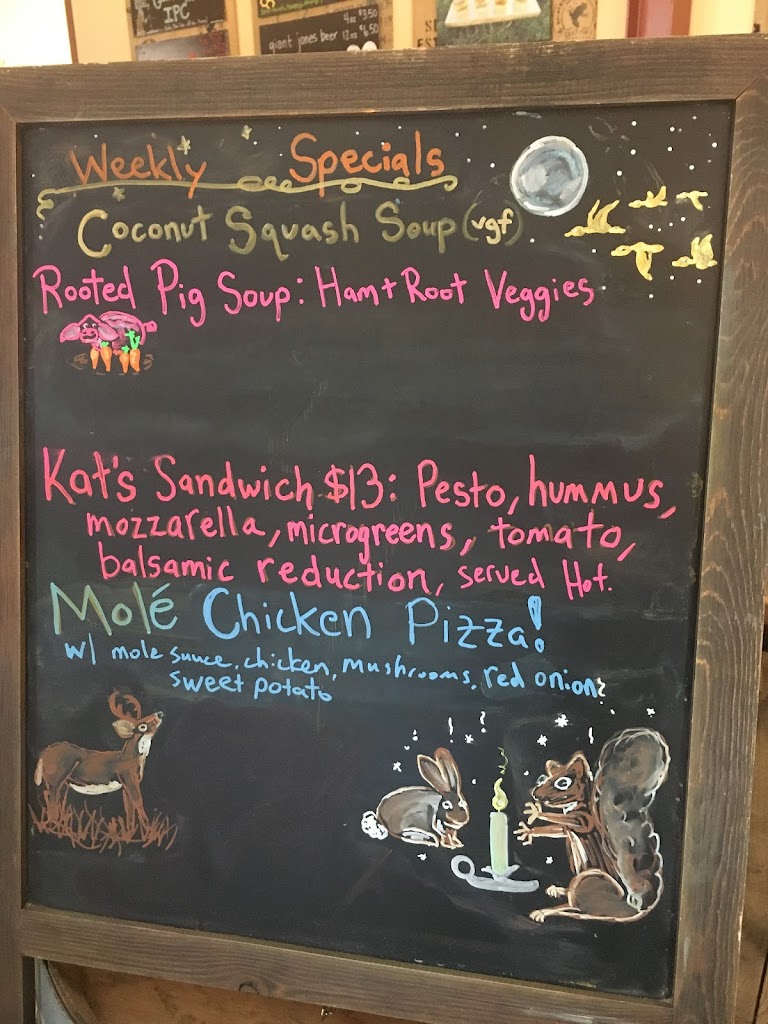 IPC
giant jones beer
4oz $3.50
12oz $6.50
Weekly Specials
Coconut Squash Soup (vgf)
Rooted Pig Soup: Ham + Root Veggies
Kat's Sandwich $13: Pesto, hummus,
mozzarella, microgreens, tomato,
balsamic reduction, served Hot.
Molé Chicken Pizza!
w/ mole suuce, chicken, mushrooms, red onion,
sweet potato
! ? ?
!